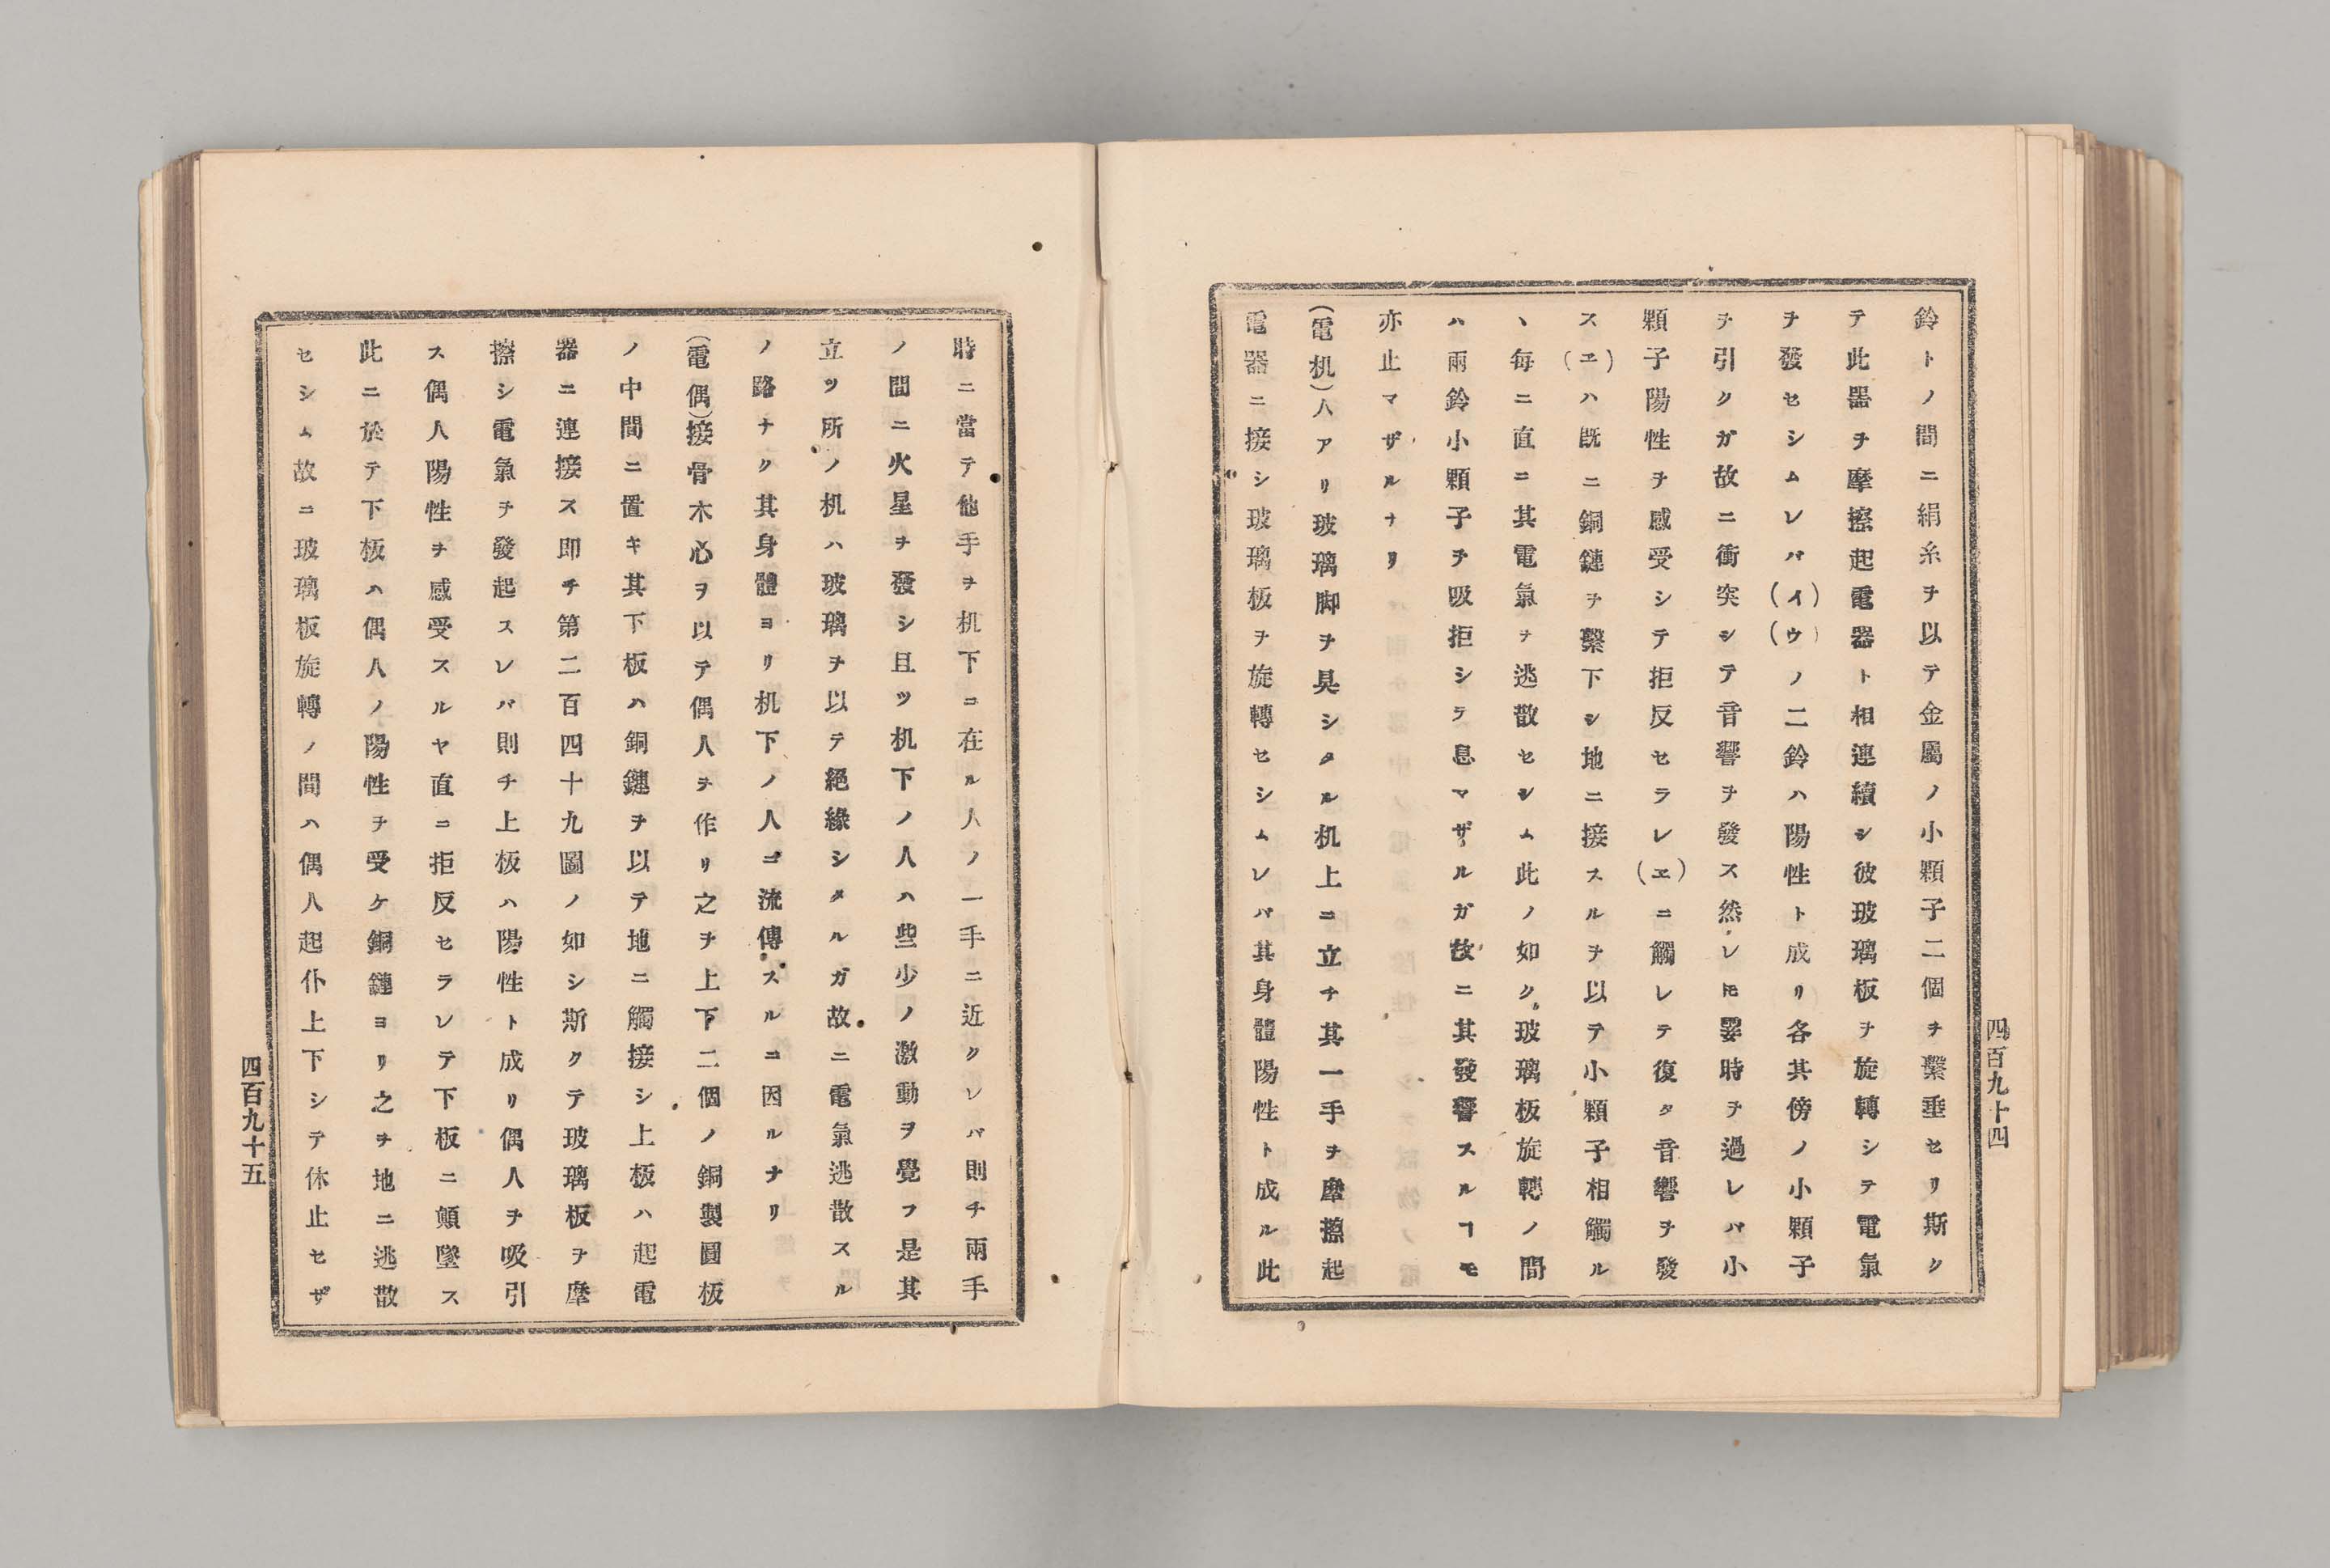 鈴トノ間ニ絹糸ヲ以テ金屬ノ小顆子二個ヲ繫垂セリ斯ク
テ此器ヲ摩擦起電器ト相連續シ彼玻璃板ヲ旋轉シテ電氣
ヲ發セシムレバ(イ)(ウ)ノ二鈴ハ陽性ト成リ各其傍ノ小顆子
ヲ引クガ故ニ衝突シテ音響ヲ發ス然レ𪜈霎時ヲ過レバ小
顆子陽性ヲ感受シテ拒反セラレ(ヱ)ニ觸レテ復タ音響ヲ發
ス(ヱ)ハ既ニ銅鏈ヲ繫下シ地ニ接スルヲ以テ小顆子相觸ル
ヽ每ニ直ニ其電氣ヲ逃散セシム此ノ如ク玻璃板旋轉ノ間
ハ兩鈴小顆子ヲ吸拒シテ息マザルガ故ニ其發響スルヿモ
亦止マザルナリ
(電机)人アリ玻璃脚ヲ具シタル机上ニ立チ其一手ヲ摩擦起
電器ニ接シ玻璃板ヲ旋轉セシムレバ其身體陽性ト成ル此
四百九十四
時ニ當テ他手ヲ机下ニ在ル人ノ一手ニ近クレバ則チ兩手
ノ間ニ火星ヲ發シ且ツ机下ノ人ハ些少ノ激動ヲ覺フ是其
立ツ所ノ机ハ玻璃ヲ以テ絕緣シタルガ故ニ電氣逃散スル
ノ路ナク其身體ヨリ机下ノ人ニ流傳スルニ因ルナリ
(電偶)接骨木心ヲ以テ偶人ヲ作リ之ヲ上下二個ノ銅製圓板
ノ中間ニ置キ其下板ハ銅鏈ヲ以テ地ニ觸接シ上板ハ起電
器ニ連接ス即チ第二百四十九圖ノ如シ斯クテ玻璃板ヲ摩
擦シ電氣ヲ發起スレバ則チ上板ハ陽性ト成リ偶人ヲ吸引
ス偶人陽性ヲ感受スルヤ直ニ拒反セラレテ下板ニ顚墜ス
此ニ於テ下板ハ偶人ノ陽性ヲ受ケ銅鏈ヨリ之ヲ地ニ逃散
セシム故ニ玻璃板旋轉ノ間ハ偶人起仆上下シテ休止セザ
四百九十五